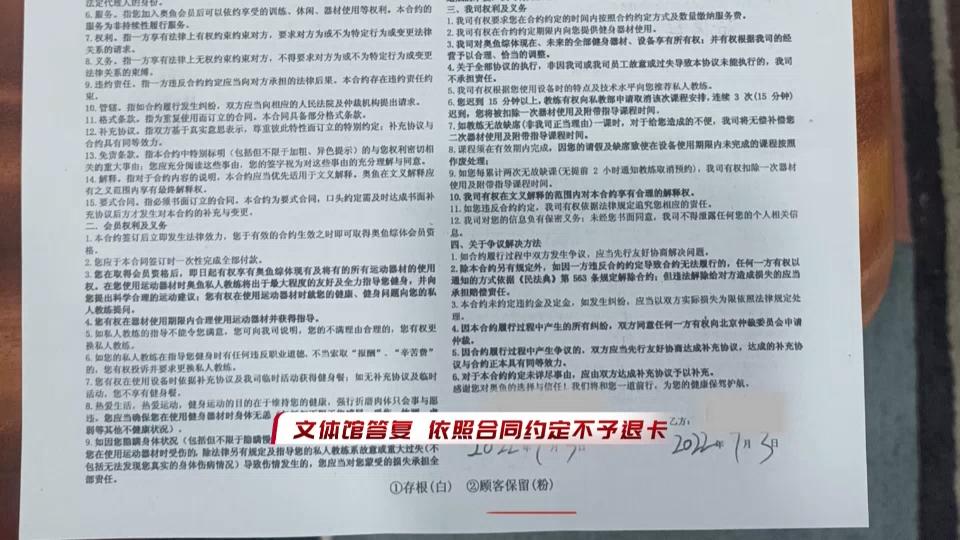 法定代理人的身份。
6.服务。指您加入奥鱼会员后可以依约享受的训练、休闲、器材使用等权利。本合约的
服务为非持续性履行服务。
7.权利。指一方享有法律上有权约束约束对方,要求对方为或不为特定行为或变更法律
关系的请求。
8.义务。指一方享有法律上无权约束约束对方,不得要求对方为或不为特定行为或变更
法律关系的束缚。
9.违约责任。指一方违反合约约定应当向对方承担的法律后果。本合约存在违约责任约
束。
10.管辖。指如合约履行发生纠纷,双方应当向相应的人民法院及仲裁机构提出请求。
11.格式条款。指为重复使用而订立的合同。本合同具备部分格式条款。
12.补充协议。指双方基于真实意思表示,尊重彼此特性而订立的特别约定;补充协议与
合约具有同等效力。
13.免责条款。指本合约中特别标明(包括但不限于加粗、异色提示)的与您权利密切相
关的重大事由;您应充分阅读这些事由,您的签字视为对这些事由的充分理解与同意。
14.解释。指对于合约内容的说明,本合约应当优先适用于文义解释。奥鱼在文义解释应
有之义范围内享有最终解释权。
15.要式合同。指必须书面订立的合同。本合约为要式合同,口头约定需及时达成书面补
充协议后方才发生对本合约的补充与变更。
二、会员权利及义务
1.本合约签订后立即发生法律效力,您于有效的合约生效之时即可取得奥鱼综体会员资
格。
2.您应于本合同签订时一次性完成全部付款。
3.您在取得会员资格后,即日起有权享有奥鱼综体现有及将有的所有运动器材的使用
权。在您使用运动器材时奥鱼私人教练将出于最大程度的友好及全力指导您健身,并向
您提出科学合理的运动建议;您有权在使用运动器材时就您的健康、健身问题向您的私
人教练提问。
4.您有权在器材使用期限内合理使用运动器材并获得指导。
5.如私人教练的指导不能令您满意,您可向我司说明,您的不满理由合理的,您有权更
换私人教练。
6.如您的私人教练在指导您健身时有任何违反职业道德、不当索取“报酬”、“辛苦费”
的,您有权投诉并要求更换私人教练。
7.您有权在使用设备时依据补充协议及我司临时活动获得健身餐;如无补充协议及临时
活动,您不享有健身餐。
8.热爱生活,热爱运动,健身运动的目的在于维持您的健康,强行折磨肉体只会事与愿
违。您应当确保您在使用健身器材时身体无恙
弱等其他不健康状况)。
9.如因您隐瞒身体状况(包括但不限于隐瞒
使用运动器材时受伤的,除法律另有规定及指导您的私人教练系故意或重大过失(不
包括无法发现您真实的身体伤病情况)导致伤情发生的,您应当对您蒙受的损失承担全
部责任。
三、我司权利及义务
1.我司有权要求您在合约约定的时间内按照合约约定方式及数量缴纳服务费。
2.我司有权在合约约定期限内向您提供健身器材使用。
3.我司对奥鱼综体现在、未来的全部健身器材、设备享有所有权;并有权根据我司的经
营予以合理、恰当的调整。
4.关于全部协议的执行,非因我司或我司员工故意或过失导致本协议未能执行的,我司
不承担责任。
5.我司有权根据您使用设备时的特点及技术水平向您推荐私人教练。
6.您迟到 15 分钟以上,教练有权向私教部申请取消该次课程安排,连续 3 次(15 分钟)
迟到,您将被扣除一次器材使用及附带指导课程时间。
7.如教练无故缺席(非我司正当理由)一课时,对于给您造成的不便,我司将无偿补偿您
二次器材使用及附带指导课程时间。
8.课程须在有效期内完成。因您的请假及缺席致使在设备使用期限内未完成的课程按照
作废处理;
9.如您每累计两次无故缺课(无提前 2 小时通知教练取消预约),我司有权扣除一次器材
使用及附带指导课程时间。
10.我司有权在文义解释的范围内对本合约享有合理的解释权。
11.如您违反合约约定,我司有权依据法律规定追究您相应的责任。
12.我司对您的信息负有保密义务;未经您书面同意,我司不得泄露任何您的个人相关信
息。
四、关于争议解决方法
1.如合约履行过程中双方发生争议,应当先行友好协商解决问题。
2.除本合约另有规定外,如因一方违反合约约定导致合约无法履行的,任何一方有权以
通知的方式依据《民法典》第 563 条规定解除合约;但违法解除给对方造成损失的应当
承担赔偿责任。
3.本合约未约定违约金及定金,如发生纠纷,应当以双方实际损失为限依照法律规定处
理。
4.因本合约履行过程中产生的所有纠纷,双方同意任何一方有权向北京仲裁委员会申请
仲裁。
5.因合约履行过程中产生争议的,双方应当先行友好协商达成补充协议,达成的补充协
议与合约正本具有同等效力。
6.对于本合约约定未详尽事由,应由双方达成补充协议予以补充。
感谢您对奥鱼的选择与信任!我们将和您一道前行,为您的健康保驾护航。
乙方:
2022年7月3日
2022年7月3日
文体馆答复 依照合同约定不予退卡
①存根(白) ②顾客保留(粉)